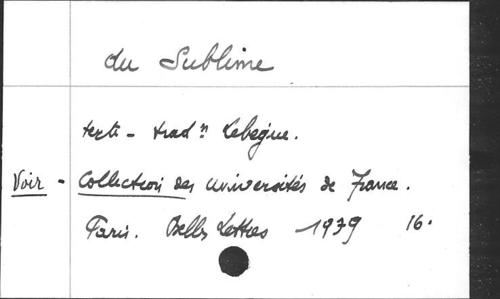 du Sublime
texte - trad.n Lebègue.
Voir - Collection des universités de France.
Paris. Belles Lettres 1939 16.